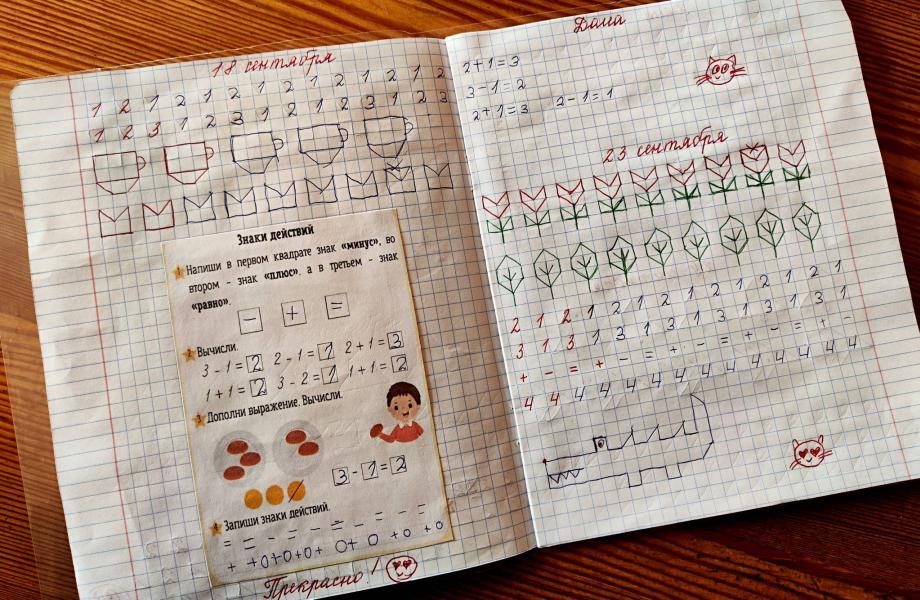 18 сентября
1 2 1 2 1 2 1 2 1 2 1 2 1 2
1 2 3 1 2 3 1 2 1 2 3 1 2 3
Знаки действий
1 Напиши в первом квадрате знак «минус», во
втором - знак «плюс», а в третьем - знак
«равно».
- + =
2 Вычисли.
3 - 1 = 2 2 - 1 = 1 2 + 1 = 3
1 + 1 = 2 3 - 2 = 1 1 + 1 = 2
3 Дополни выражение. Вычисли.
3 - 1 = 2
4 Запиши знаки действий.
= = - - - = - - =
+ +0+0+0+ 0+ 0 +0 +0
Прекрасно!
Дома
2+1=3
3-1=2
2+1=3 2-1=1
23 сентября
2 1 2 1 2 1 2 1 2 1 2 1 2 1
3 1 3 1 3 1 3 1 3 1 3 1 3 1
+ - = + - = + - = + - = + -
4 4 4 4 4 4 4 4 4 4 4 4 4 4